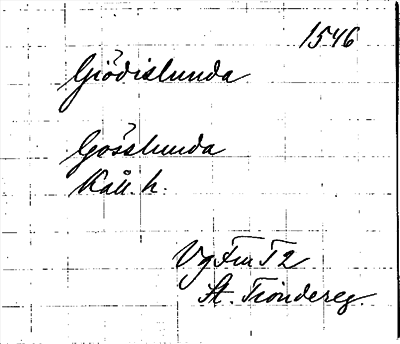 1546
Giödislunda
Gösslunda
Kåll. h.
Vg Fm T 2
St. Tiondereg.